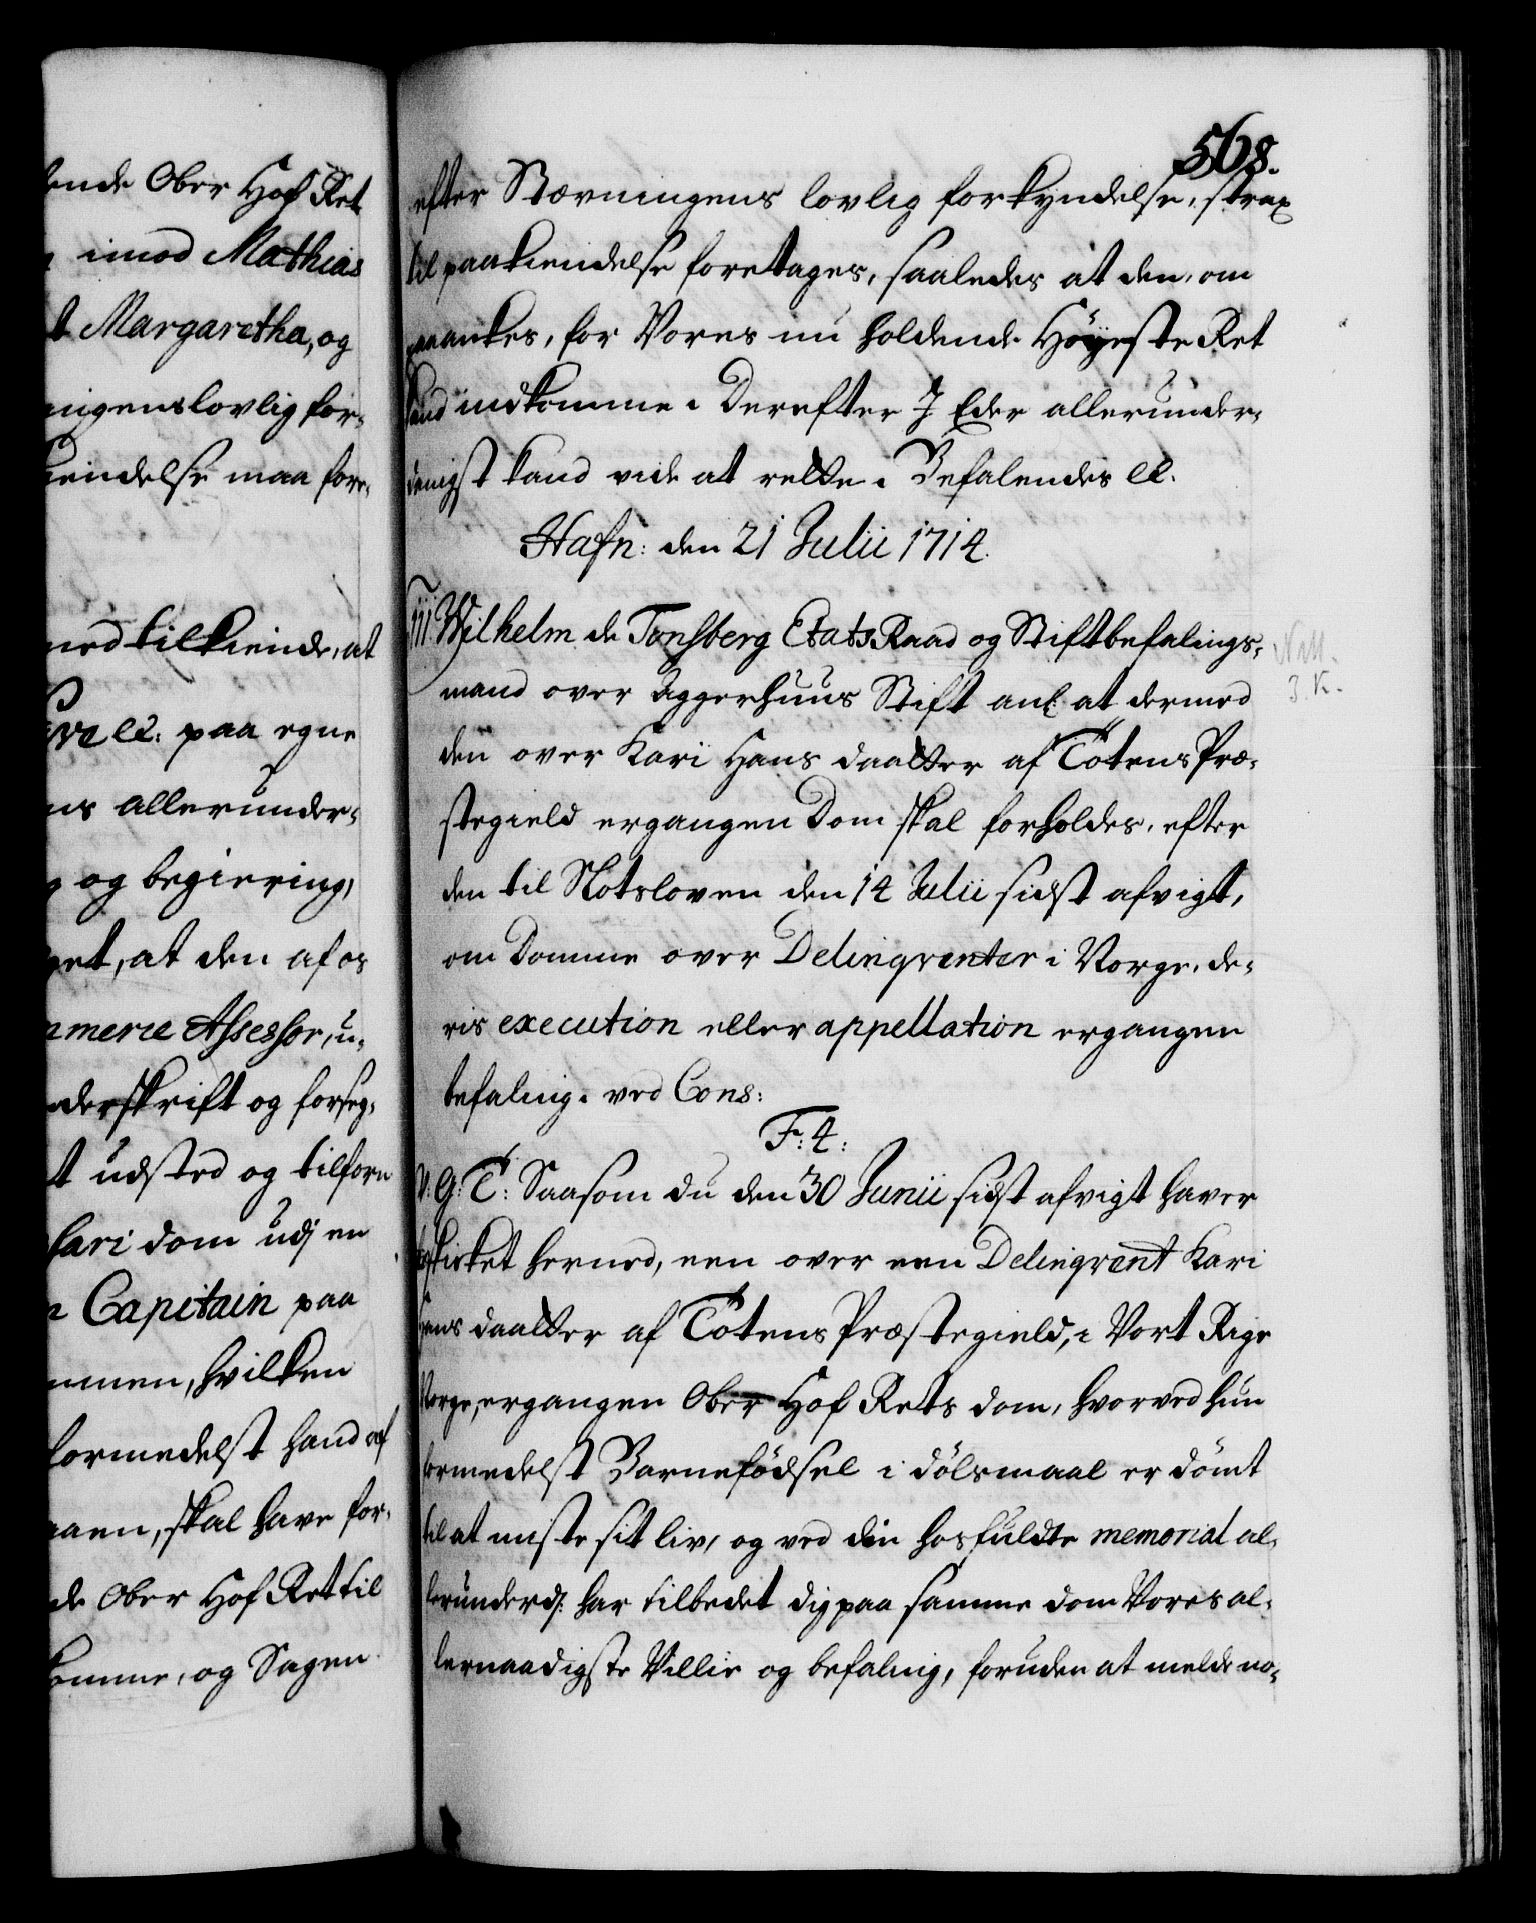 ende Ober Hof Ret
imod Mathias
t Margaretha, og
ningens lovlig for-
kiendelse maa fore-
med tilkiende, at
etc: paa egne
ns allerunder-
og begiering,
get, at den af os
merie Assessor, u-
nderskrift og forseg-
t udsted og tilforn
fari dom udj en
n Capitain paa
mmen, hvilken
formedelst hand af
aaen, skal have for-
de Ober Hof Ret til
komme, og Sagen
568.
efter Stævningens lovlig forkyndelse, strax
til paakiendelse foretages, saaledes at den, om
paaankes, for Vores nu holdende Höyeste Ret
kand indkomme. Derefter J Eder allerunder-
danigst kand vide at rette. Befalendis etc.
Hafn: den 21 Julii 1714.
Til Wilhelm de Tonsberg Etats Raad og Stiftbefalings-
mand over Aggerhuus Stift anl. at dermed
den over Kari Hans daatter af Totens Præ-
stegield ergangen Dom skal forholdes, efter
den til Slotsloven den 14 Julii sidst afvigt,
om Domme over Delinqventer i Norge, de-
ris execution eller appellation ergangen
befaling. ved Cons:
F: 4:
V: G: T: Saasom du den 30 Junii sidst afvigt haver
hidskicket herned, een over een Delinqvent Kari
Hans daatter af Totens Præstegield, i Vort Rige
Norge, ergangen Ober Hof Rets dom, hvorved hun
formedelst Barnefödsel i dölsmaal er dömt
til at miste sit liv, og ved din hosfuldte memorial al-
lerunderd: har tilbedet dig paa samme dom Vores al-
lernaadigste Villie og befaling, foruden at melde no-
N.M.
3. K.